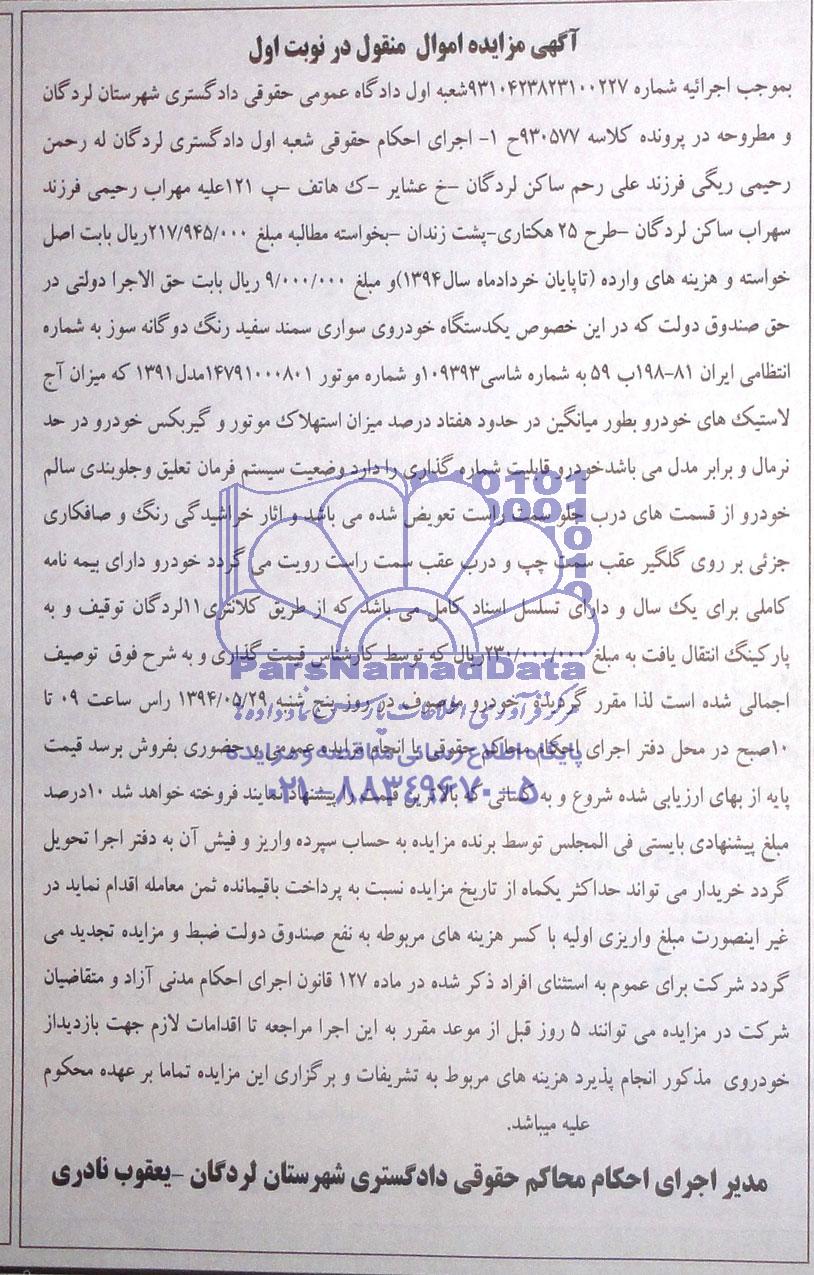 آگهی مزایده اموال منقول در نوبت اول
بموجب اجرائیه شماره ۹۳۱۰۴۲۳۸۲۳۱۰۰۲۲۷شعبه اول دادگاه عمومی حقوقی دادگستری شهرستان لردگان
و مطروحه در پرونده کلاسه ۹۳۰۵۷۷ح ۱- اجرای احکام حقوقی شعبه اول دادگستری لردگان له رحمن
رحیمی ریگی فرزند علی رحم ساکن لردگان -خ عشایر -ک هاتف -پ ۱۲۱علیه مهراب رحیمی فرزند
سهراب ساکن لردگان -طرح ۲۵ هکتاری-پشت زندان -بخواسته مطالبه مبلغ ۲۱۷/۹۴۵/۰۰۰ریال بابت اصل
خواسته و هزینه های وارده (تاپایان خردادماه سال۱۳۹۴)و مبلغ ۹/۰۰۰/۰۰۰ ریال بابت حق الاجرا دولتی در
حق صندوق دولت که در این خصوص یکدستگاه خودروی سواری سمند سفید رنگ دوگانه سوز به شماره
انتظامی ایران ۸۱-۱۹۸ب ۵۹ به شماره شاسی۱۰۹۳۹۳و شماره موتور ۱۴۷۹۱۰۰۰۸۰۱مدل۱۳۹۱ که میزان آج
لاستیک های خودرو بطور میانگین در حدود هفتاد درصد میزان استهلاک موتور و گیربکس خودرو در حد
نرمال و برابر مدل می باشدخودرو قابلیت شماره گذاری را دارد وضعیت سیستم فرمان تعلیق وجلوبندی سالم
خودرو از قسمت های درب جلو سمت راست تعویض شده می باشد و اثار خراشیدگی رنگ و صافکاری
جزئی بر روی گلگیر عقب سمت چپ و درب عقب سمت راست رویت می گردد خودرو دارای بیمه نامه
کاملی برای یک سال و دارای تسلسل اسناد کامل می باشد که از طریق کلانتری۱۱لردگان توقیف و به
پارکینگ انتقال یافت به مبلغ ۲۳۰/۰۰۰/۰۰۰ریال که توسط کارشناس قیمت گذاری و به شرح فوق توصیف
اجمالی شده است لذا مقرر گردیده خودرو موصوف در روز پنج شنبه ۱۳۹۴/۰۵/۲۹ راس ساعت ۰۹ تا
۱۰صبح در محل دفتر اجرای احکام محاکم حقوقی با انجام مزایده عمومی و حضوری بفروش برسد قیمت
پایه از بهای ارزیابی شده شروع و به کسانی که بالاترین قیمت را پیشنهاد نمایند فروخته خواهد شد ۱۰درصد
مبلغ پیشنهادی بایستی فی المجلس توسط برنده مزایده به حساب سپرده واریز و فیش آن به دفتر اجرا تحویل
گردد خریدار می تواند حداکثر یکماه از تاریخ مزایده نسبت به پرداخت باقیمانده ثمن معامله اقدام نماید در
غیر اینصورت مبلغ واریزی اولیه با کسر هزینه های مربوطه به نفع صندوق دولت ضبط و مزایده تجدید می
گردد شرکت برای عموم به استثنای افراد ذکر شده در ماده ۱۲۷ قانون اجرای احکام مدنی آزاد و متقاضیان
شرکت در مزایده می توانند ۵ روز قبل از موعد مقرر به این اجرا مراجعه تا اقدامات لازم جهت بازدیداز
خودروی مذکور انجام پذیرد هزینه های مربوط به تشریفات و برگزاری این مزایده تماما بر عهده محکوم
علیه میباشد.
مدیر اجرای احکام محاکم حقوقی دادگستری شهرستان لردگان -یعقوب نادری
ParsNamadData
مرکز فرآوری اطلاعات پارس نماد داده ها
پایگاه اطلاع رسانی مناقصه و مزایده
۰۲۱-۸۸۳۴۹۶۷۰-۵